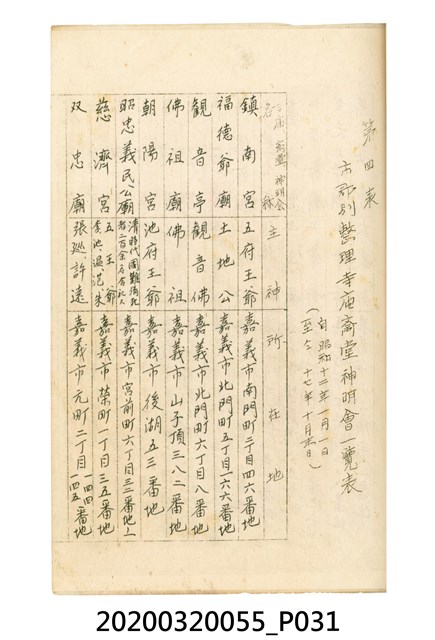 第四表
市郡別整理寺庙斎堂神明會一覽表
（自昭和十二年一月一日
至仝十七年十月末日）
寺庙斎堂神明会名称　主神　所在地
鎮南宮　五府王爺　嘉義市南門町二丁目四六番地
福德爺廟　土地公　嘉義市北門町五丁目一六六番地
観音亭　観音佛　嘉義市北門町六丁目八番地
佛祖廟　佛祖　嘉義市山子頂三八二番地
朝陽宮　池府王爺　嘉義市後湖五三番地
昭忠義民公廟　清時代国難殉死者二百余名有私人　嘉義市宮前町六丁目三三番地ノ一
慈濟宮　五王爺　李、池、温、范、朱　嘉義市榮町一丁目三五番地
双忠廟　張巡許遠　嘉義市元町二丁目一四四、一四五番地
20200320055_P031